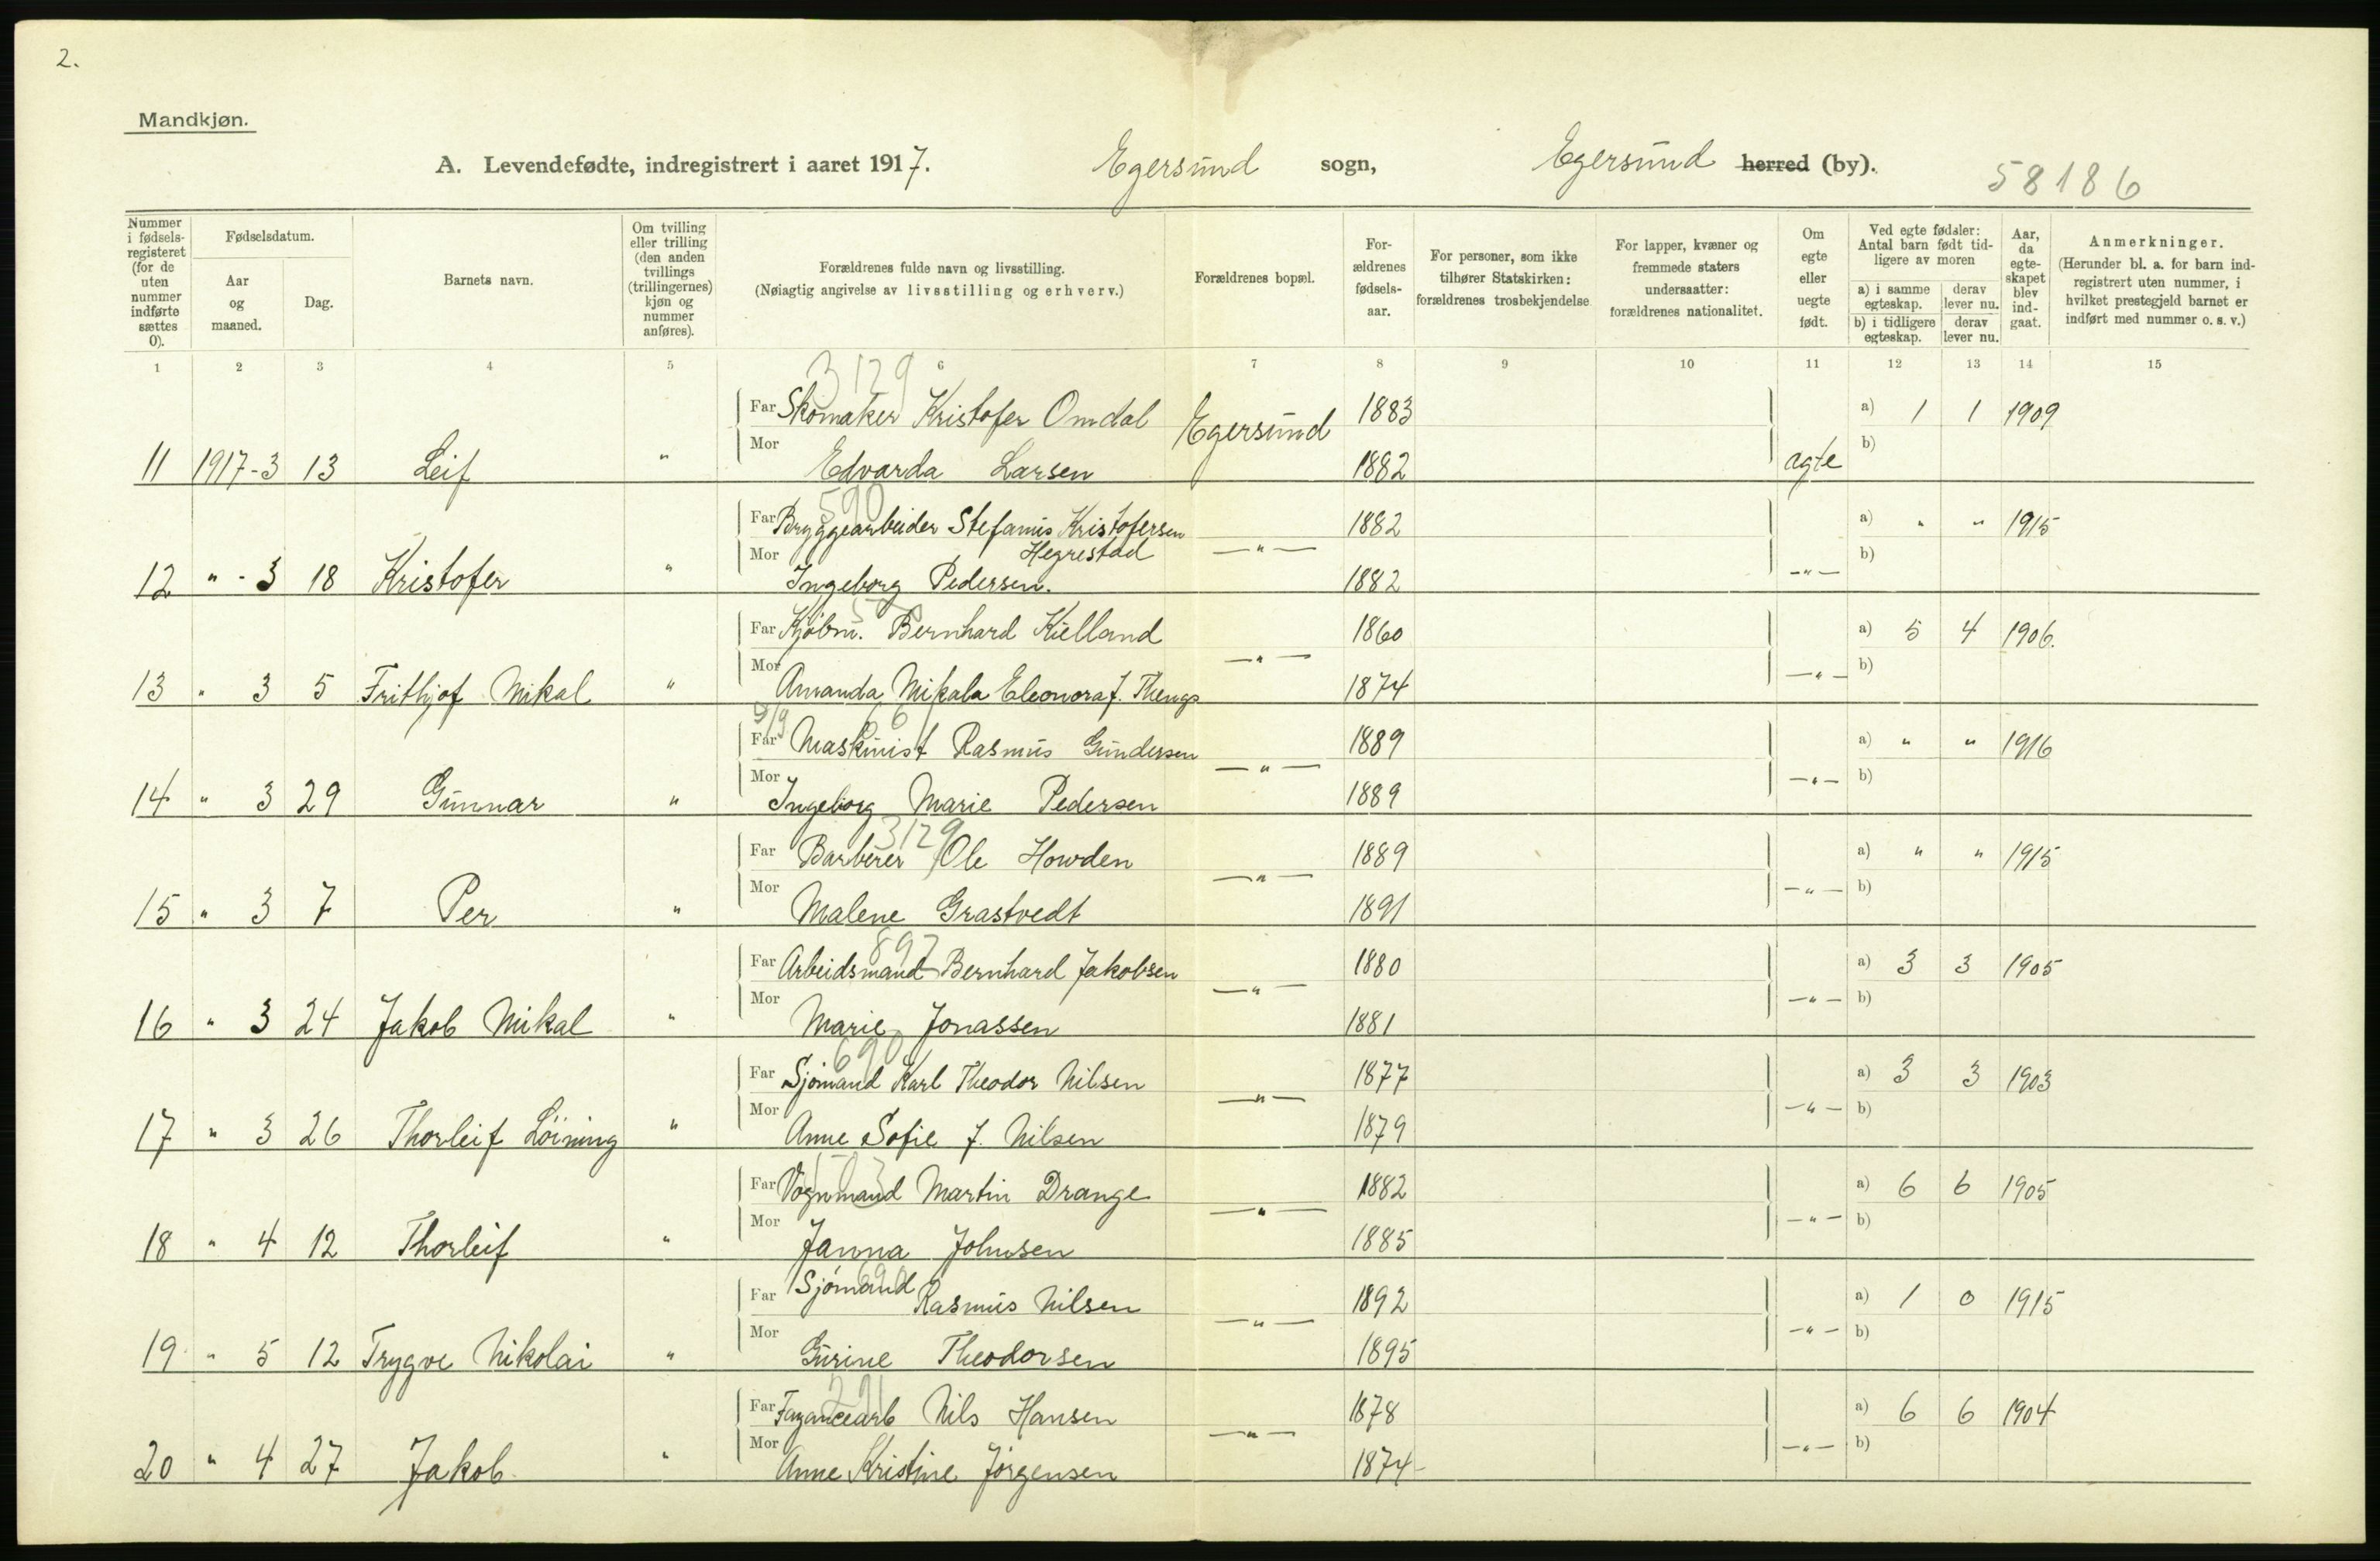 2.
Mandkjøn.
A. Levendefødte, indregistrert i aaret 1917. Egersund sogn, Egersund herred (by). 58186
Nummer i fødselsregisteret (for de uten nummer indførte sættes 0). Fødselsdatum. Aar og maaned. Dag. Barnets navn. Om tvilling eller trilling (den anden tvillings (trillingernes) kjøn og nummer anføres). Forældrenes fulde navn og livsstilling. (Nøiagtig angivelse av livsstilling og erhverv.) Forældrenes bopæl. Forældrenes fødselsaar. For personer, som ikke tilhører Statskirken: forældrenes trosbekjendelse. For lapper, kvæner og fremmede staters undersaatter: forældrenes nationalitet. Om egte eller uegte født. Ved egte fødsler: Antal barn født tidligere av moren a) i samme egteskap. derav lever nu. b) i tidligere egteskap. derav lever nu. Aar, da egteskapet blev indgaat. Anmerkninger. (Herunder bl. a. for barn indregistrert uten nummer, i hvilket prestegjeld barnet er indført med nummer o. s. v.)
1 2 3 4 5 6 7 8 9 10 11 12 13 14 15
3129
Far Skomaker Kristofer Omdal Egersund 1883 a) 1 1 1909
11 1917-3 13 Leif " Mor Edvarda Larsen 1882 agte b)
590
Far Bryggearbeider Stefanus Kristofersen Hegrestad —"— 1882 a) " " 1915
12 " - 3 18 Kristofer " Mor Ingeborg Pedersen. 1882 —"— b)
Far Kjøbm. Bernhard Kielland —"— 1860 a) 5 4 1906.
13 " 3 5 Frithjof Mikal " Mor Amanda Mikala Eleonora f. Thengs 1874 —"— b)
Far Maskinist Rasmus Gundersen —"— 1889 a) " " 1916
14 " 3 29 Gunnar " Mor Ingeborg Marie Pedersen 1889 —"— b)
3129
Far Barberer Ole Howden —"— 1889 a) " " 1915
15 " 3 7 Per " Mor Malene Grastvedt 1891 —"— b)
897
Far Arbeidsmand Bernhard Jakobsen —"— 1880 a) 3 3 1905
16 " 3 24 Jakob Mikal " Mor Marie Jonassen 1881 —"— b)
690
Far Sjömand Karl Theodor Nilsen —"— 1877 a) 3 3 1903
17 " 3 26 Thorleif Löining " Mor Anne Sofie J. Nilsen 1879 —"— b)
Far Vognmand Martin Drange —"— 1882 a) 6 6 1905
18 " 4 12 Thorleif " Mor Janna Johnsen 1885 —"— b)
690
Far Sjömand Rasmus Nilsen —"— 1892 a) 1 0 1915
19 " 5 12 Trygve Nikolai " Mor Gurine Theodorsen 1895 —"— b)
291
Far Fayancearb Nils Hansen —"— 1878 a) 6 6 1904
20 " 4 27 Jakob " Mor Anne Kristine Jörgensen 1874 —"— b)